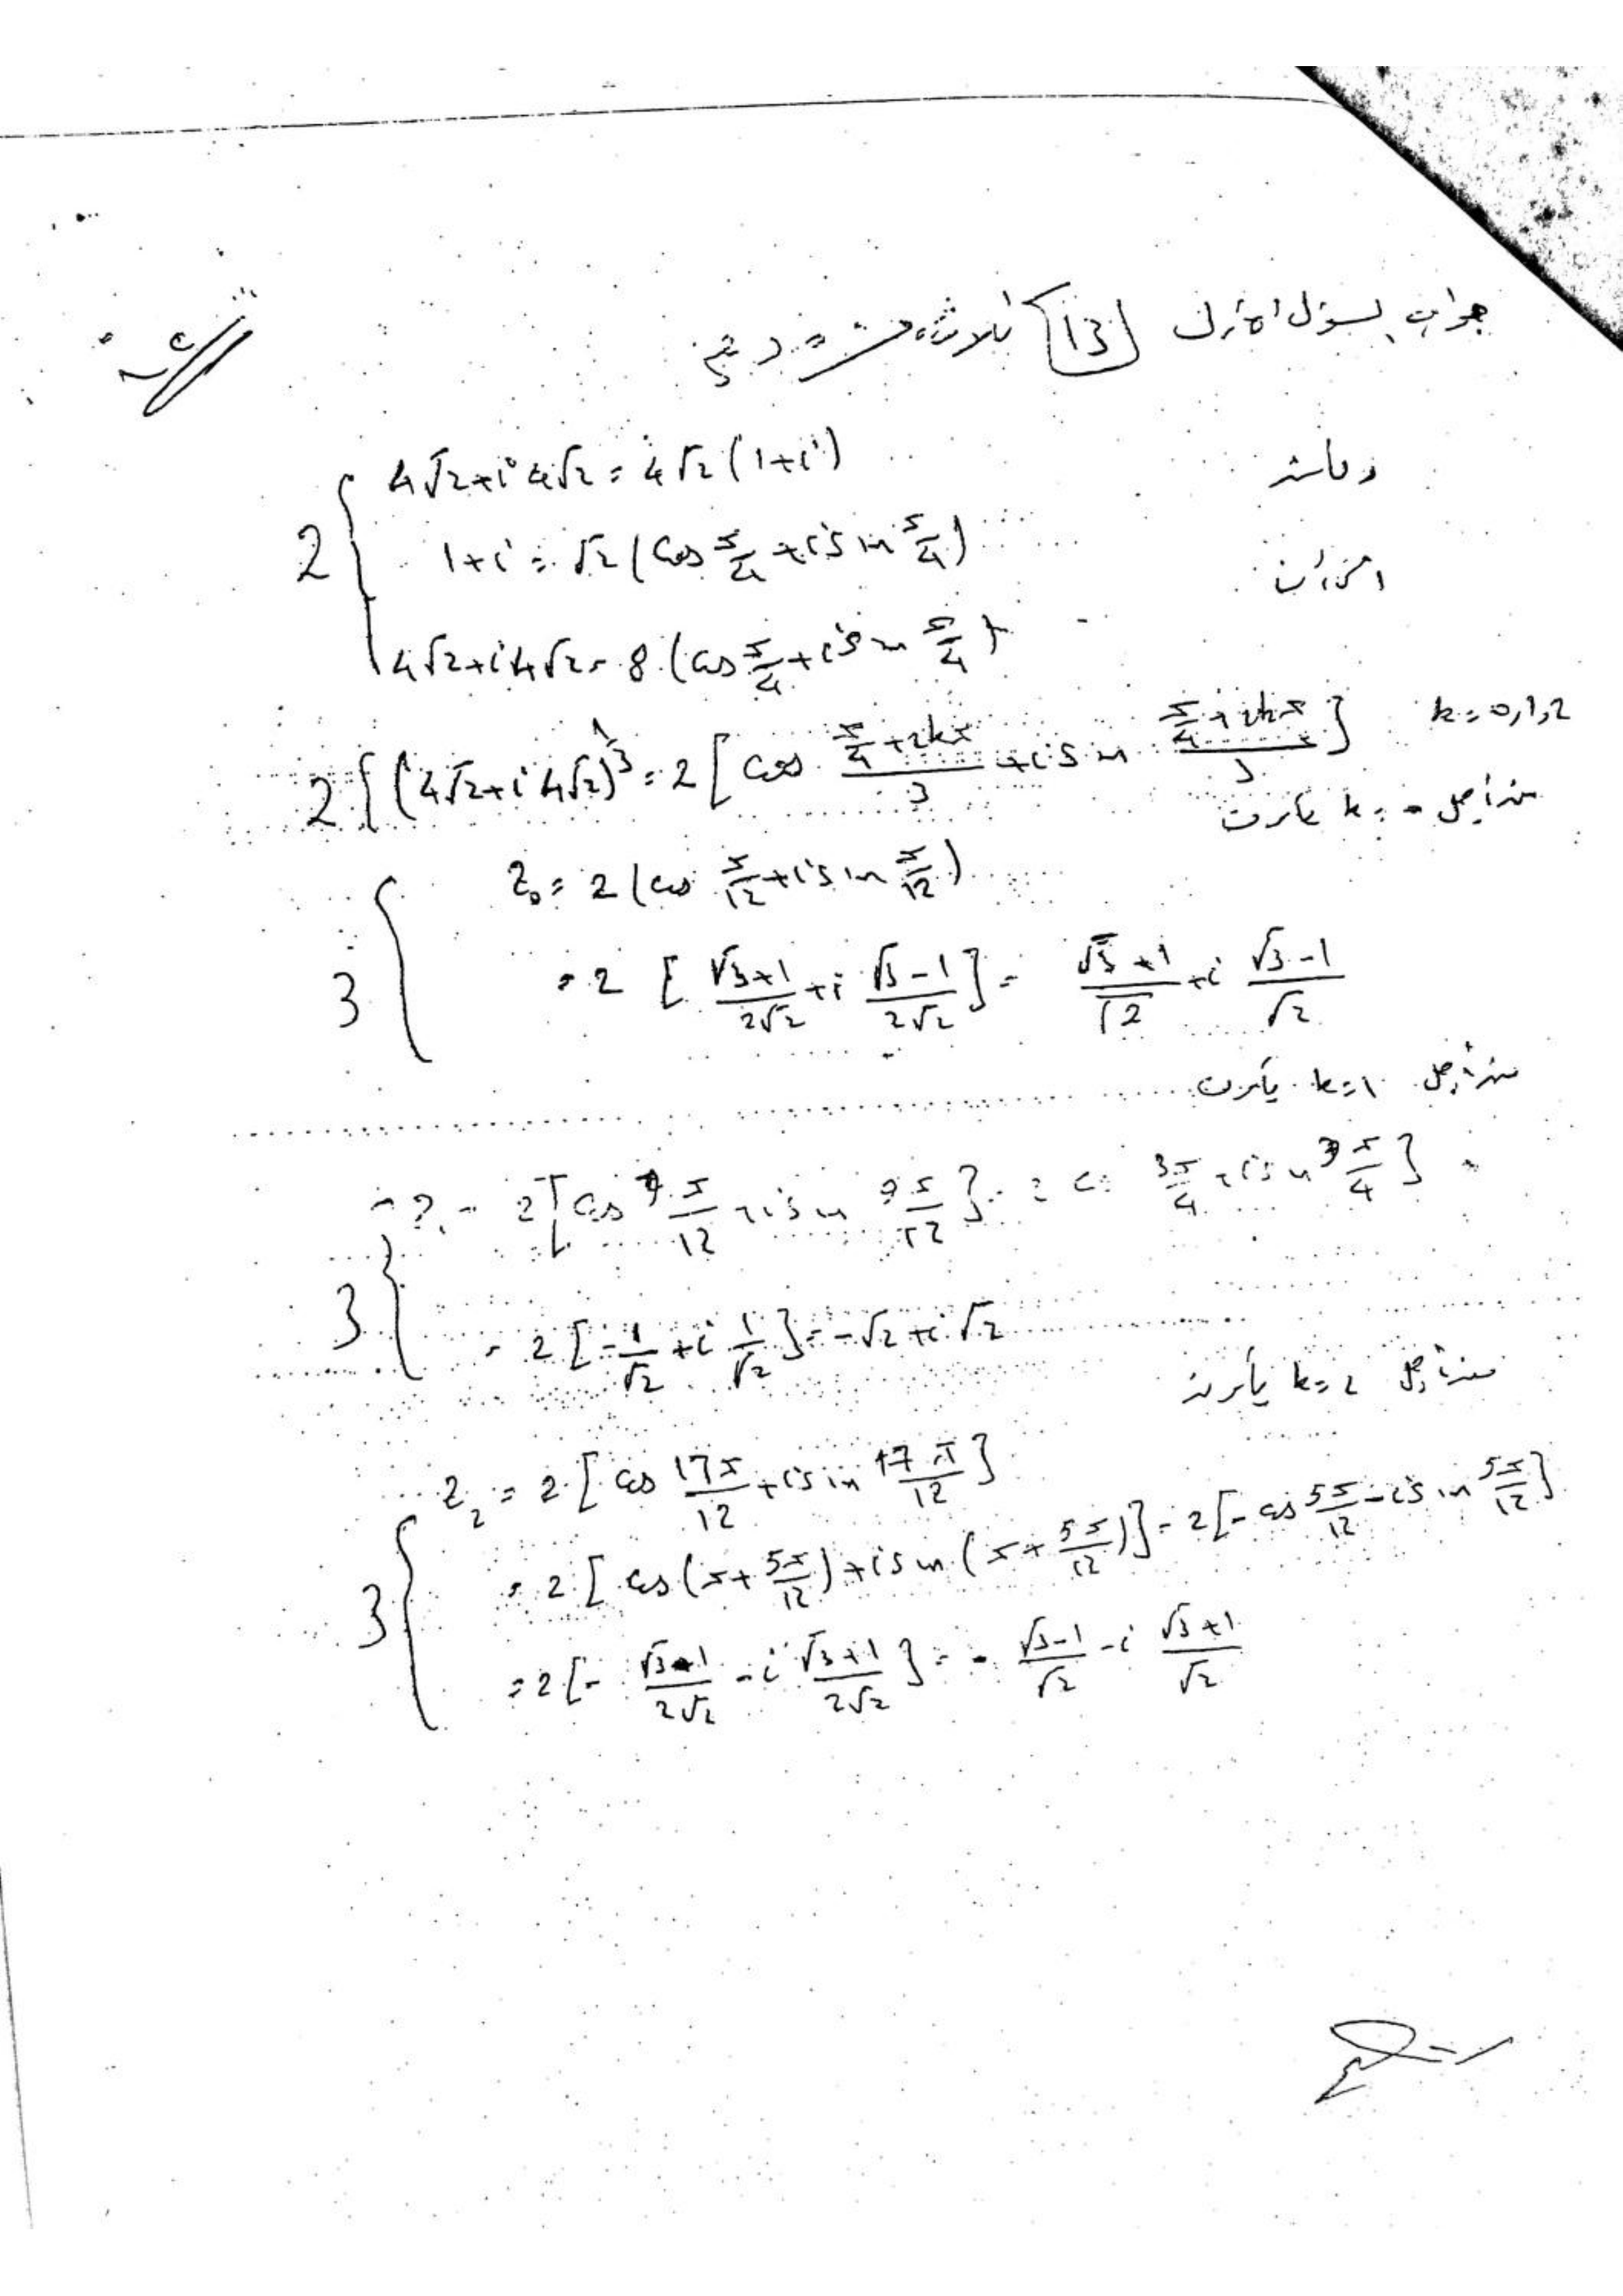 جواب السؤال الأول [13] ثلاثة عشر درجة
4√2+i4√2 = 4√2 (1+i)
1+i = √2 (cos π/4 + i sin π/4)
4√2+i4√2 = 8 (cos π/4 + i sin π/4)
2
2 { (4√2+i4√2)^(1/3) = 2 [cos (π/4+2kπ)/3 + i sin (π/4+2kπ)/3] k=0,1,2
من أجل k=0 يكون
z₀ = 2 (cos π/12 + i sin π/12)
3 { = 2 [(√3+1)/(2√2) + i (√3-1)/(2√2)] = (√3+1)/√2 + i (√3-1)/√2
من أجل k=1 يكون
2 [cos 9π/12 + i sin 9π/12] = 2 [cos 3π/4 + i sin 3π/4]
3 { = 2 [-1/√2 + i 1/√2] = -√2 + i√2
من أجل k=2 يكون
z₂ = 2 [cos 17π/12 + i sin 17π/12]
= 2 [cos (π + 5π/12) + i sin (π + 5π/12)] = 2 [-cos 5π/12 - i sin 5π/12]
3 { = 2 [- (√3-1)/(2√2) - i (√3+1)/(2√2)] = - (√3-1)/√2 - i (√3+1)/√2